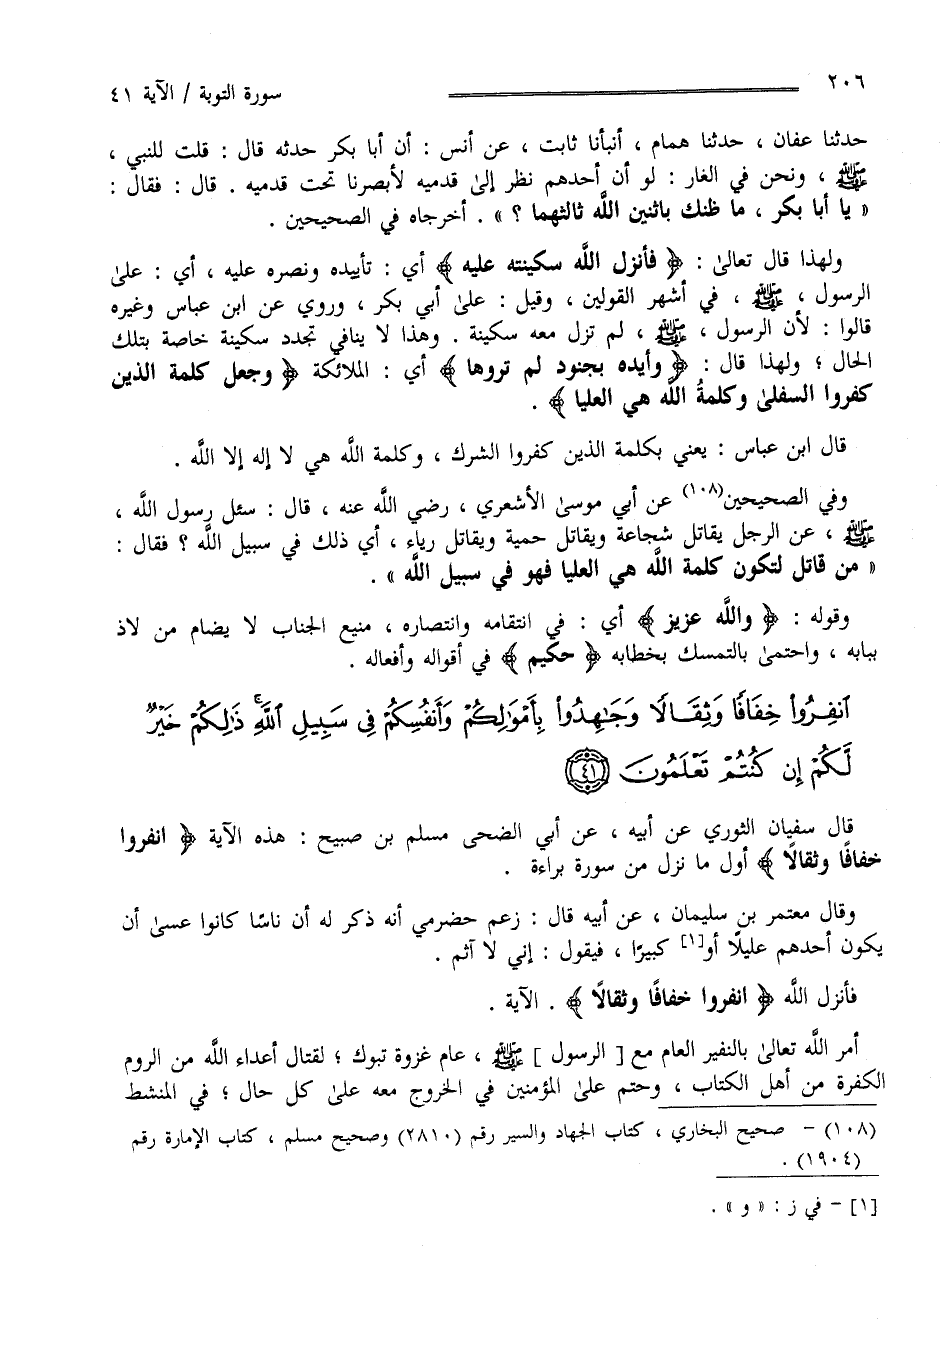 ٢٠٦
سورة التوبة / الآية ٤١
حدثنا عفان ، حدثنا همام ، أنبأنا ثابت ، عن أنس : أن أبا بكر حدثه قال : قلت للنبي ،
ﷺ ، ونحن في الغار : لو أن أحدهم نظر إلىٰ قدميه لأبصرنا تحت قدميه . قال : فقال :
« يا أبا بكر ، ما ظنك باثنين اللَّه ثالثهما ؟ » . أخرجاه في الصحيحين .
ولهذا قال تعالىٰ : ﴿ فأنزل اللَّه سكينته عليه ﴾ أي : تأييده ونصره عليه ، أي : علىٰ
الرسول ، ﷺ ، في أشهر القولين ، وقيل : علىٰ أبي بكر ، وروي عن ابن عباس وغيره
قالوا : لأن الرسول ، ﷺ ، لم تزل معه سكينة . وهذا لا ينافي تجدد سكينة خاصة بتلك
الحال ؛ ولهذا قال : ﴿ وأيده بجنود لم تروها ﴾ أي : الملائكة ﴿ وجعل كلمة الذين
كفروا السفلىٰ وكلمةُ اللَّه هي العليا ﴾ .
قال ابن عباس : يعني بكلمة الذين كفروا الشرك ، وكلمة اللَّه هي لا إله إلا اللَّه .
وفي الصحيحين(١٠٨) عن أبي موسىٰ الأشعري ، رضي اللَّه عنه ، قال : سئل رسول اللَّه ،
ﷺ ، عن الرجل يقاتل شجاعة ويقاتل حمية ويقاتل رياء ، أي ذلك في سبيل اللَّه ؟ فقال :
« من قاتل لتكون كلمة اللَّه هي العليا فهو في سبيل اللَّه » .
وقوله : ﴿ واللَّه عزيز ﴾ أي : في انتقامه وانتصاره ، منيع الجناب لا يضام من لاذ
ببابه ، واحتمىٰ بالتمسك بخطابه ﴿ حكيم ﴾ في أقواله وأفعاله .
ٱنفِرُواْ خِفَافًا وَثِقَالًا وَجَٰهِدُواْ بِأَمْوَٰلِكُمْ وَأَنفُسِكُمْ فِى سَبِيلِ ٱللَّهِ ۚ ذَٰلِكُمْ خَيْرٌ
لَّكُمْ إِن كُنتُمْ تَعْلَمُونَ ٤١
قال سفيان الثوري عن أبيه ، عن أبي الضحى مسلم بن صبيح : هذه الآية ﴿ انفروا
خفافًا وثقالًا ﴾ أول ما نزل من سورة براءة .
وقال معتمر بن سليمان ، عن أبيه قال : زعم حضرمي أنه ذكر له أن ناسًا كانوا عسىٰ أن
يكون أحدهم عليلًا أو[١] كبيرًا ، فيقول : إني لا آثم .
فأنزل اللَّه ﴿ انفروا خفافًا وثقالًا ﴾ . الآية .
أمر اللَّه تعالىٰ بالنفير العام مع [ الرسول ] ﷺ ، عام غزوة تبوك ؛ لقتال أعداء اللَّه من الروم
الكفرة من أهل الكتاب ، وحتم علىٰ المؤمنين في الخروج معه علىٰ كل حال ؛ في المنشط
(١٠٨) – صحيح البخاري ، كتاب الجهاد والسير رقم (٢٨١٠) وصحيح مسلم ، كتاب الإمارة رقم
(١٩٠٤) .
[١] – في ز : « و » .